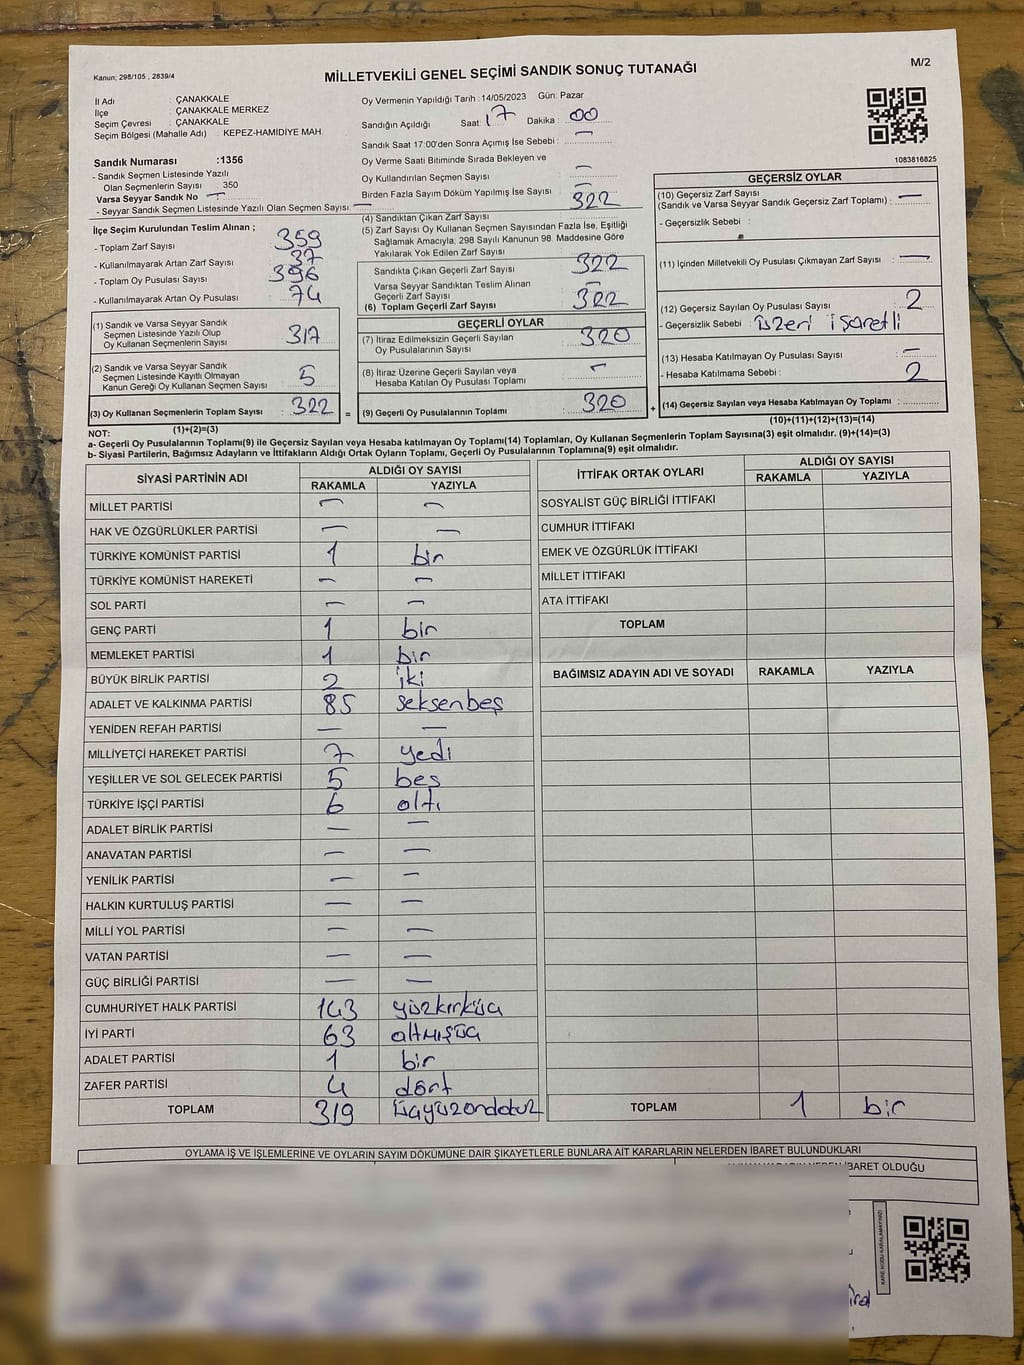 Kanun; 298/105 , 2839/4
MİLLETVEKİLİ GENEL SEÇİMİ SANDIK SONUÇ TUTANAĞI
M/2
İl Adı : ÇANAKKALE
İlçe : ÇANAKKALE MERKEZ
Seçim Çevresi : ÇANAKKALE
Seçim Bölgesi (Mahalle Adı) : KEPEZ-HAMİDİYE MAH.
Sandık Numarası :1356
- Sandık Seçmen Listesinde Yazılı
Olan Seçmenlerin Sayısı 350
Varsa Seyyar Sandık No : —
- Seyyar Sandık Seçmen Listesinde Yazılı Olan Seçmen Sayısı: —
Oy Vermenin Yapıldığı Tarih : 14/05/2023 Gün: Pazar
Sandığın Açıldığı Saat : 17 Dakika : 00
Sandık Saat 17:00'den Sonra Açımış İse Sebebi : —
Oy Verme Saati Bitiminde Sırada Bekleyen ve
Oy Kullandırılan Seçmen Sayısı : —
Birden Fazla Sayım Döküm Yapılmış İse Sayısı : —
1083816825
İlçe Seçim Kurulundan Teslim Alınan ;
- Toplam Zarf Sayısı : 359
- Kullanılmayarak Artan Zarf Sayısı : 37
- Toplam Oy Pusulası Sayısı : 396
- Kullanılmayarak Artan Oy Pusulası : 74
(1) Sandık ve Varsa Seyyar Sandık
Seçmen Listesinde Yazılı Olup
Oy Kullanan Seçmenlerin Sayısı : 317
(2) Sandık ve Varsa Seyyar Sandık
Seçmen Listesinde Kayıtlı Olmayan
Kanun Gereği Oy Kullanan Seçmen Sayısı : 5
(3) Oy Kullanan Seçmenlerin Toplam Sayısı : 322 =
(1)+(2)=(3)
(4) Sandıktan Çıkan Zarf Sayısı : 322
(5) Zarf Sayısı Oy Kullanan Seçmen Sayısından Fazla İse, Eşitliği
Sağlamak Amacıyla; 298 Sayılı Kanunun 98. Maddesine Göre
Yakılarak Yok Edilen Zarf Sayısı :
Sandıkta Çıkan Geçerli Zarf Sayısı : 322
Varsa Seyyar Sandıktan Teslim Alınan
Geçerli Zarf Sayısı : —
(6) Toplam Geçerli Zarf Sayısı : 322
GEÇERLİ OYLAR
(7) İtiraz Edilmeksizin Geçerli Sayılan
Oy Pusulalarının Sayısı : 320
(8) İtiraz Üzerine Geçerli Sayılan veya
Hesaba Katılan Oy Pusulası Toplamı : —
(9) Geçerli Oy Pusulalarının Toplamı : 320 +
GEÇERSİZ OYLAR
(10) Geçersiz Zarf Sayısı
(Sandık ve Varsa Seyyar Sandık Geçersiz Zarf Toplamı) : —
- Geçersizlik Sebebi :
(11) İçinden Milletvekili Oy Pusulası Çıkmayan Zarf Sayısı : —
(12) Geçersiz Sayılan Oy Pusulası Sayısı : 2
- Geçersizlik Sebebi : üzeri işaretli
(13) Hesaba Katılmayan Oy Pusulası Sayısı : —
- Hesaba Katılmama Sebebi : 2
(14) Geçersiz Sayılan veya Hesaba Katılmayan Oy Toplamı :
(10)+(11)+(12)+(13)=(14)
NOT:
a- Geçerli Oy Pusulalarının Toplamı(9) ile Geçersiz Sayılan veya Hesaba katılmayan Oy Toplamı(14) Toplamları, Oy Kullanan Seçmenlerin Toplam Sayısına(3) eşit olmalıdır. (9)+(14)=(3)
b- Siyasi Partilerin, Bağımsız Adayların ve İttifakların Aldığı Ortak Oyların Toplamı, Geçerli Oy Pusulalarının Toplamına(9) eşit olmalıdır.
SİYASİ PARTİNİN ADI ALDIĞI OY SAYISI
RAKAMLA YAZIYLA
MİLLET PARTİSİ — —
HAK VE ÖZGÜRLÜKLER PARTİSİ — —
TÜRKİYE KOMÜNİST PARTİSİ 1 bir
TÜRKİYE KOMÜNİST HAREKETİ — —
SOL PARTİ — —
GENÇ PARTİ 1 bir
MEMLEKET PARTİSİ 1 bir
BÜYÜK BİRLİK PARTİSİ 2 iki
ADALET VE KALKINMA PARTİSİ 85 seksenbeş
YENİDEN REFAH PARTİSİ — —
MİLLİYETÇİ HAREKET PARTİSİ 7 yedi
YEŞİLLER VE SOL GELECEK PARTİSİ 5 beş
TÜRKİYE İŞÇİ PARTİSİ 6 altı
ADALET BİRLİK PARTİSİ — —
ANAVATAN PARTİSİ — —
YENİLİK PARTİSİ — —
HALKIN KURTULUŞ PARTİSİ — —
MİLLİ YOL PARTİSİ — —
VATAN PARTİSİ — —
GÜÇ BİRLİĞİ PARTİSİ — —
CUMHURİYET HALK PARTİSİ 143 yüzkırküç
İYİ PARTİ 63 altmışüç
ADALET PARTİSİ 1 bir
ZAFER PARTİSİ 4 dört
TOPLAM 319 üçyüzondokuz
İTTİFAK ORTAK OYLARI ALDIĞI OY SAYISI
RAKAMLA YAZIYLA
SOSYALİST GÜÇ BİRLİĞİ İTTİFAKI
CUMHUR İTTİFAKI
EMEK VE ÖZGÜRLÜK İTTİFAKI
MİLLET İTTİFAKI
ATA İTTİFAKI
TOPLAM
BAĞIMSIZ ADAYIN ADI VE SOYADI RAKAMLA YAZIYLA
TOPLAM 1 bir
OYLAMA İŞ VE İŞLEMLERİNE VE OYLARIN SAYIM DÖKÜMÜNE DAİR ŞİKAYETLERLE BUNLARA AİT KARARLARIN NELERDEN İBARET BULUNDUKLARI
İBARET OLDUĞU
KARE KODU KARALAMAYINIZ!